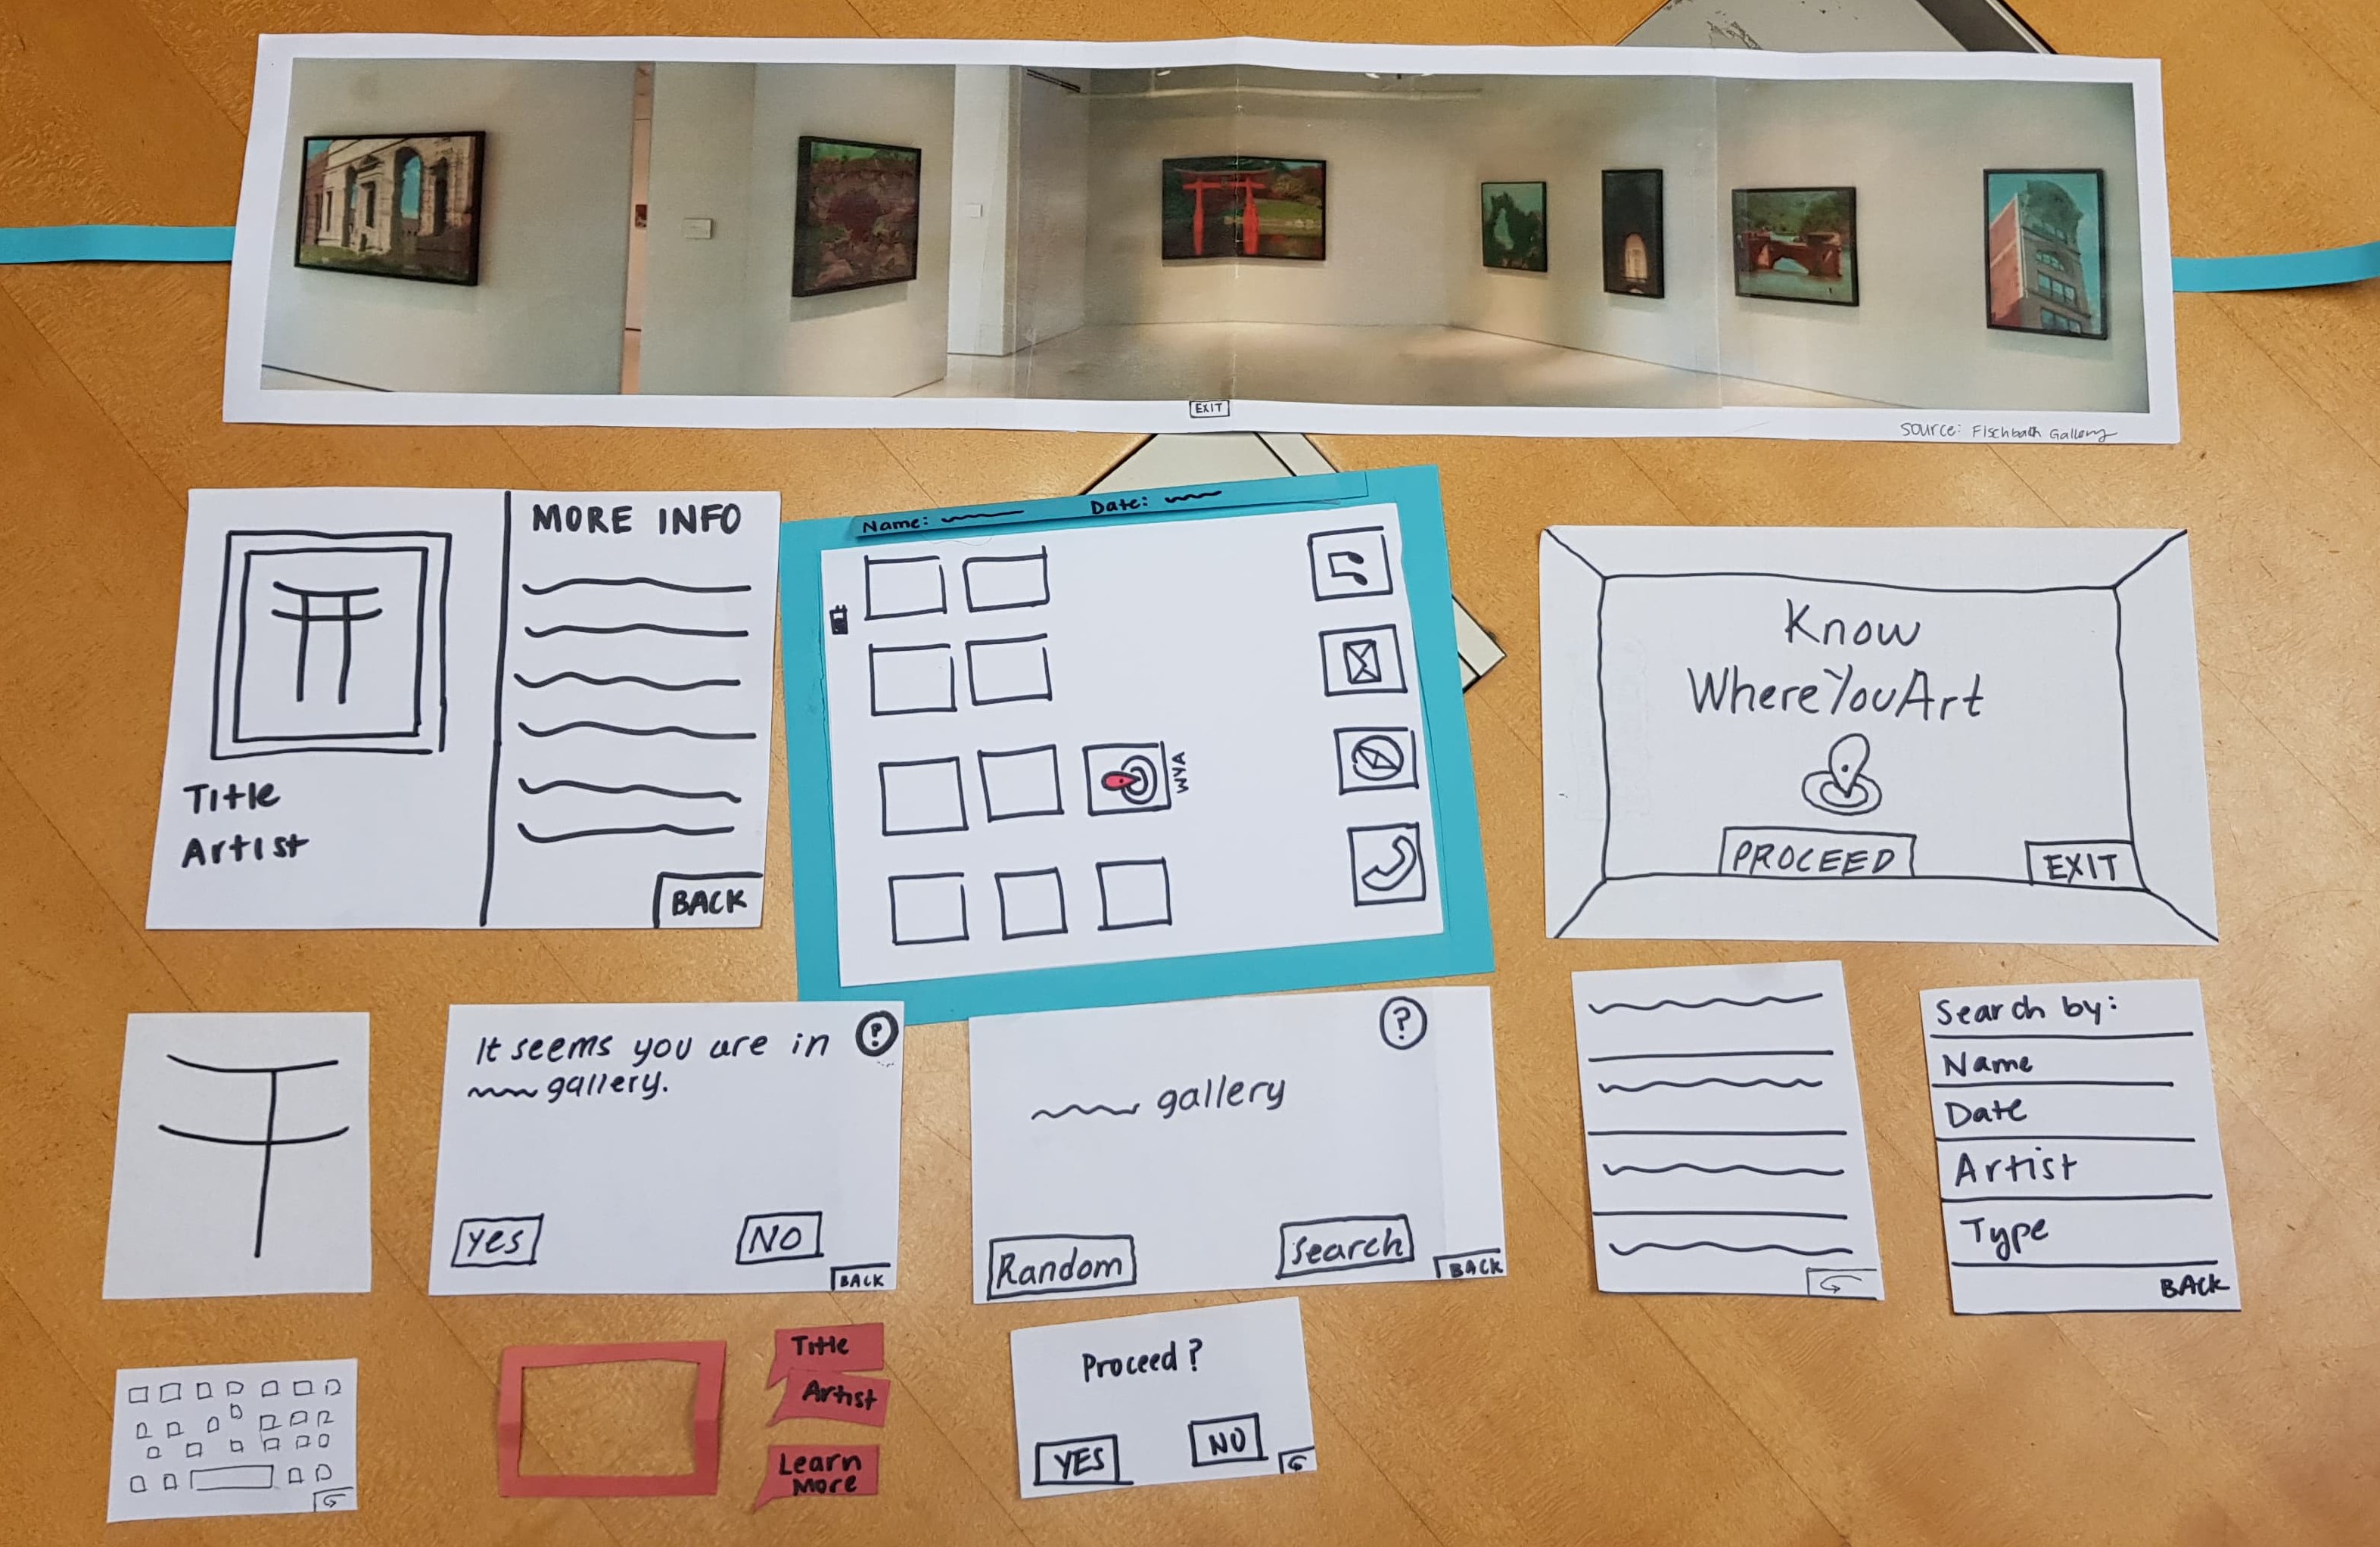 EXIT
Source: Fischbach Gallery
MORE INFO
Title
Artist
BACK
Name: Date:
WYA
Know
WhereYouArt
PROCEED
EXIT
It seems you are in
gallery.
?
Yes
NO
BACK
?
gallery
Random
Search
BACK
Search by:
Name
Date
Artist
Type
BACK
Title
Artist
Learn
More
Proceed?
YES
NO